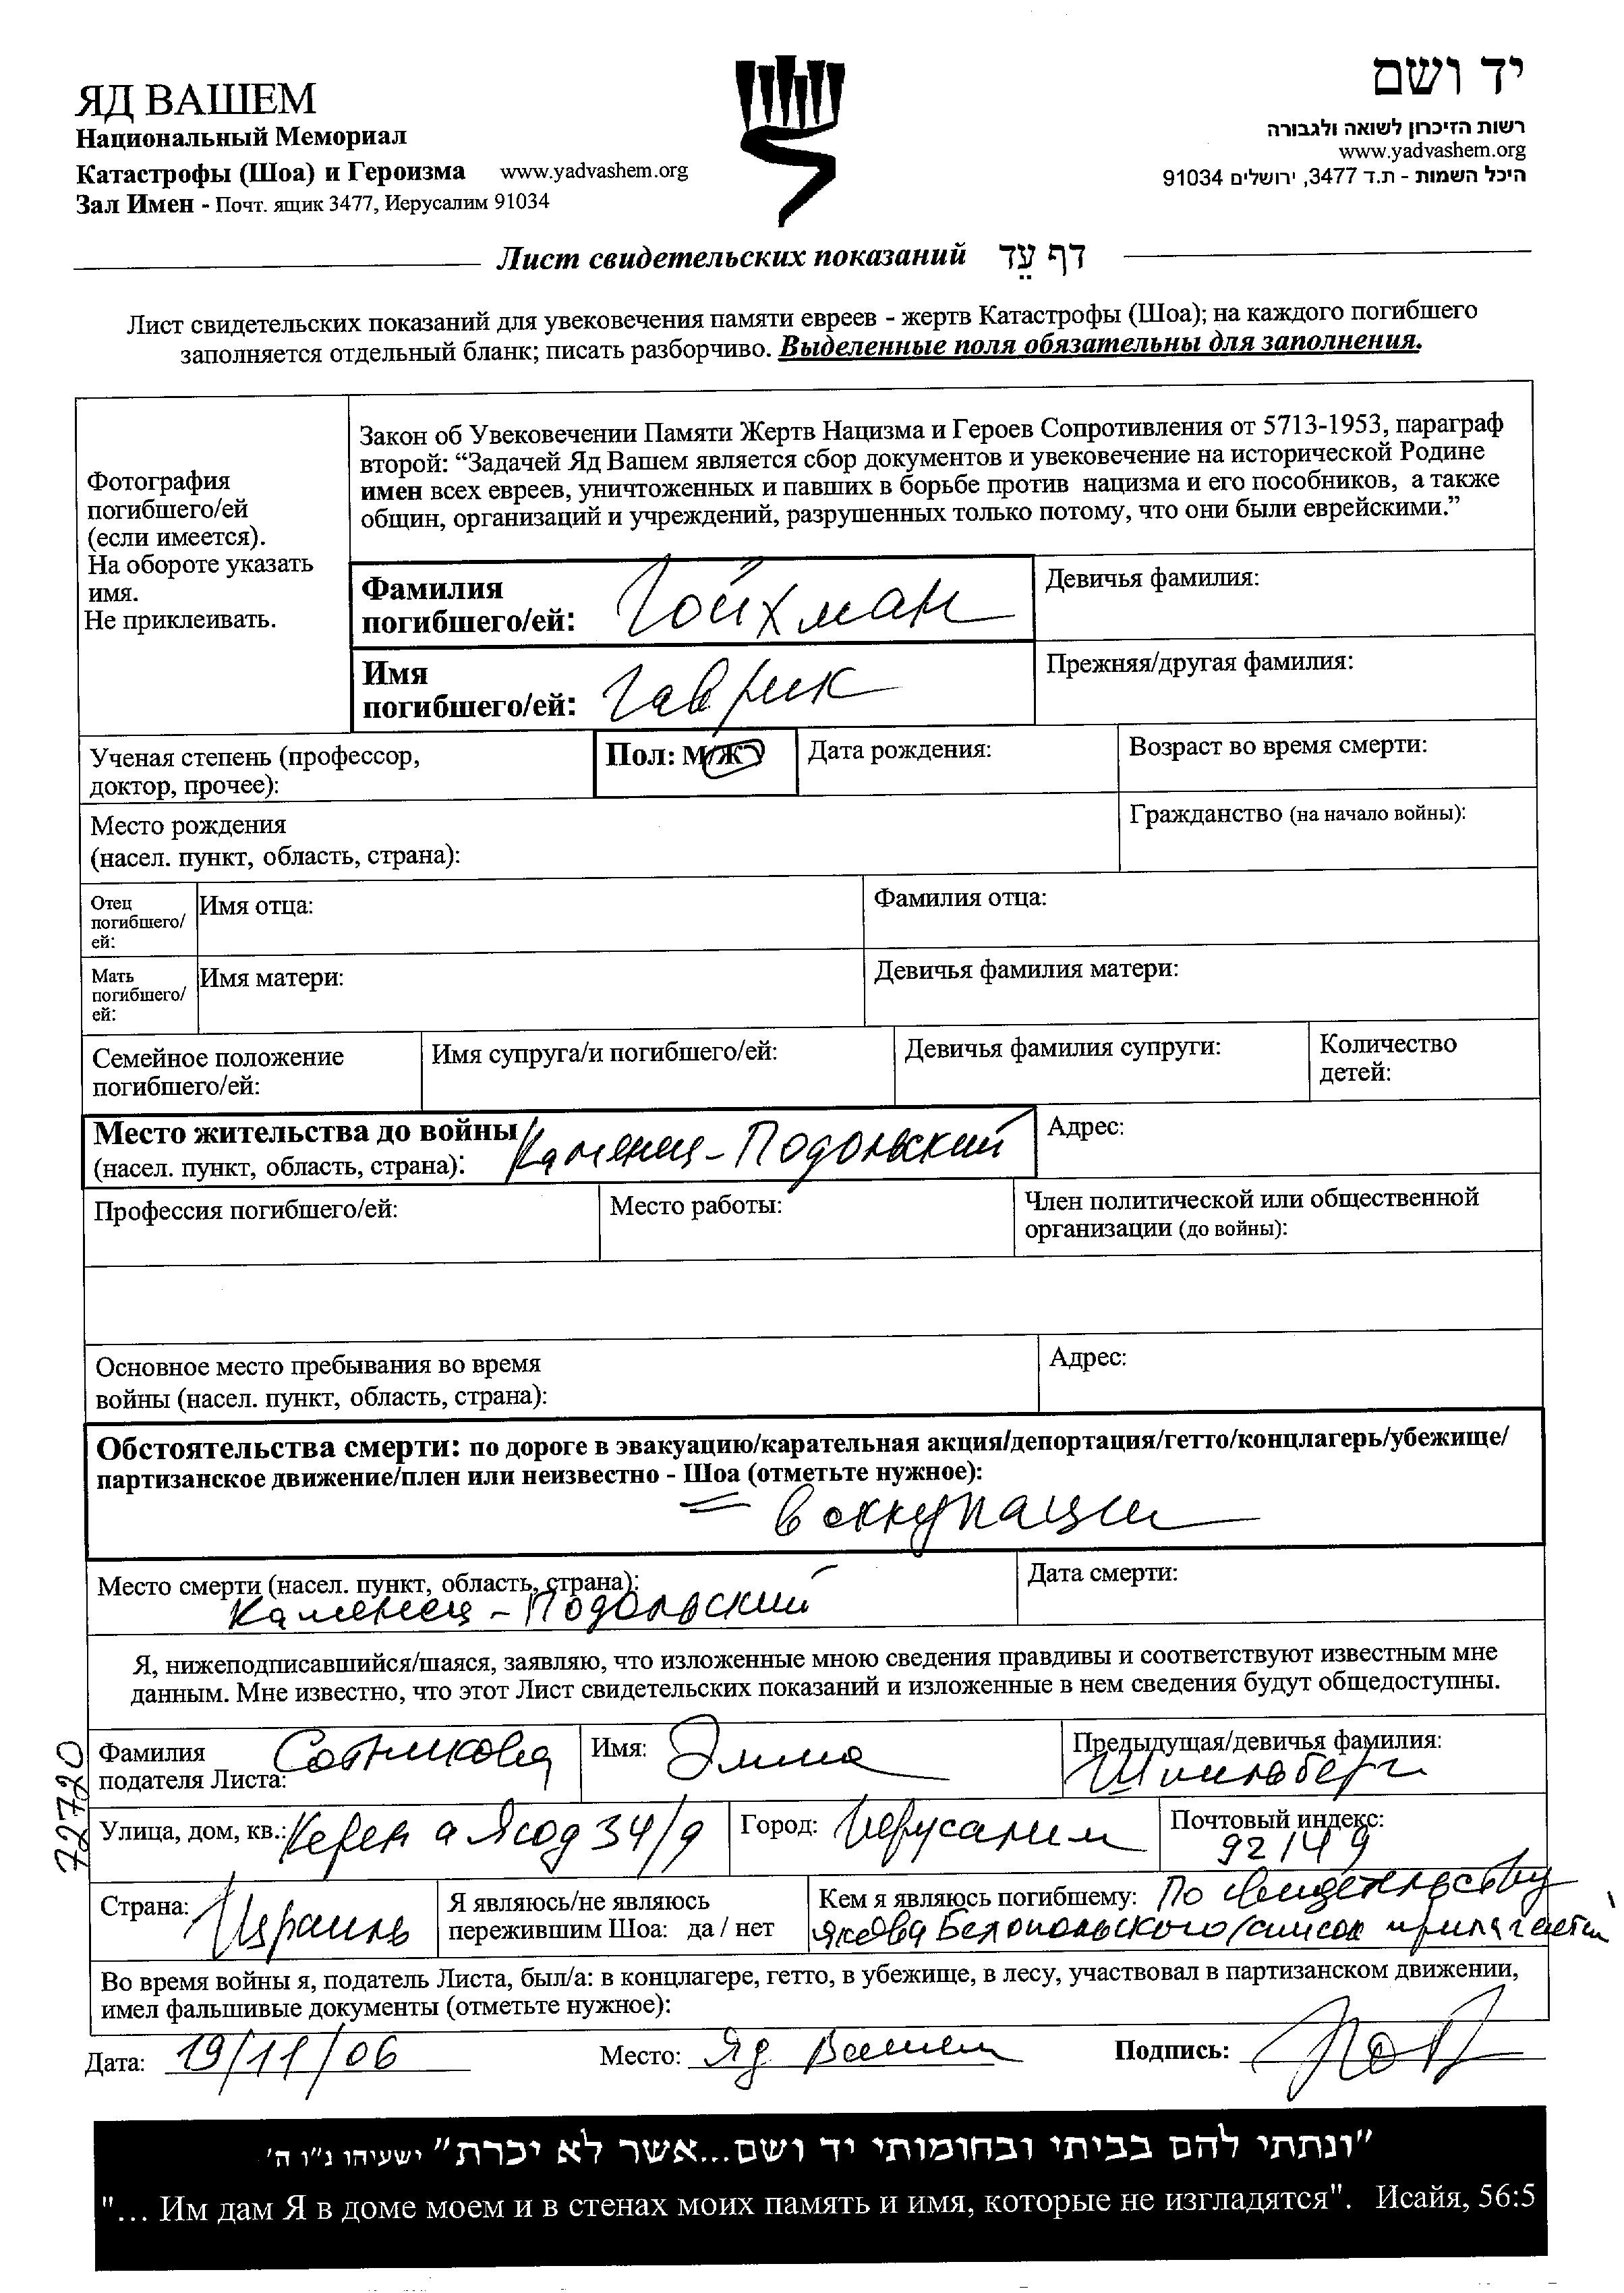 ЯД ВАШЕМ
Национальный Мемориал
Катастрофы (Шоа) и Героизма www.yadvashem.org
Зал Имен - Почт. ящик 3477, Иерусалим 91034
יד ושם
רשות הזיכרון לשואה ולגבורה
www.yadvashem.org
היכל השמות - ת.ד 3477, ירושלים 91034
Лист свидетельских показаний דף עֵד
Лист свидетельских показаний для увековечения памяти евреев - жертв Катастрофы (Шоа); на каждого погибшего
заполняется отдельный бланк; писать разборчиво. Выделенные поля обязательны для заполнения.
Фотография
погибшего/ей
(если имеется).
На обороте указать
имя.
Не приклеивать.
Закон об Увековечении Памяти Жертв Нацизма и Героев Сопротивления от 5713-1953, параграф
второй: “Задачей Яд Вашем является сбор документов и увековечение на исторической Родине
имен всех евреев, уничтоженных и павших в борьбе против нацизма и его пособников, а также
общин, организаций и учреждений, разрушенных только потому, что они были еврейскими.”
Фамилия
погибшего/ей: Гойхман
Девичья фамилия:
Имя
погибшего/ей: Гаврик
Прежняя/другая фамилия:
Ученая степень (профессор,
доктор, прочее):
Пол: М/Ж
Дата рождения:
Возраст во время смерти:
Место рождения
(насел. пункт, область, страна):
Гражданство (на начало войны):
Отец
погибшего/
ей:
Имя отца:
Фамилия отца:
Мать
погибшего/
ей:
Имя матери:
Девичья фамилия матери:
Семейное положение
погибшего/ей:
Имя супруга/и погибшего/ей:
Девичья фамилия супруги:
Количество
детей:
Место жительства до войны
(насел. пункт, область, страна): Каменец-Подольский
Адрес:
Профессия погибшего/ей:
Место работы:
Член политической или общественной
организации (до войны):
Основное место пребывания во время
войны (насел. пункт, область, страна):
Адрес:
Обстоятельства смерти: по дороге в эвакуацию/карательная акция/депортация/гетто/концлагерь/убежище/
партизанское движение/плен или неизвестно - Шоа (отметьте нужное):
в оккупации
Место смерти (насел. пункт, область, страна):
Каменец-Подольский
Дата смерти:
Я, нижеподписавшийся/шаяся, заявляю, что изложенные мною сведения правдивы и соответствуют известным мне
данным. Мне известно, что этот Лист свидетельских показаний и изложенные в нем сведения будут общедоступны.
72720
Фамилия
подателя Листа: Сотникова
Имя: Элла
Предыдущая/девичья фамилия:
Шпильберг
Улица, дом, кв.: Керен а Ясод 34/9
Город: Иерусалим
Почтовый индекс:
92149
Страна: Израиль
Я являюсь/не являюсь
пережившим Шоа: да / нет
Кем я являюсь погибшему: По свидетельству
Якова Белопольского/список прилагается
Во время войны я, податель Листа, был/а: в концлагере, гетто, в убежище, в лесу, участвовал в партизанском движении,
имел фальшивые документы (отметьте нужное):
Дата: 19/11/06
Место: Яд Вашем
Подпись:
"ונתתי להם בביתי ובחומותי יד ושם...אשר לא יכרת" ישעיהו נ"ו ה'
"... Им дам Я в доме моем и в стенах моих память и имя, которые не изгладятся". Исайя, 56:5